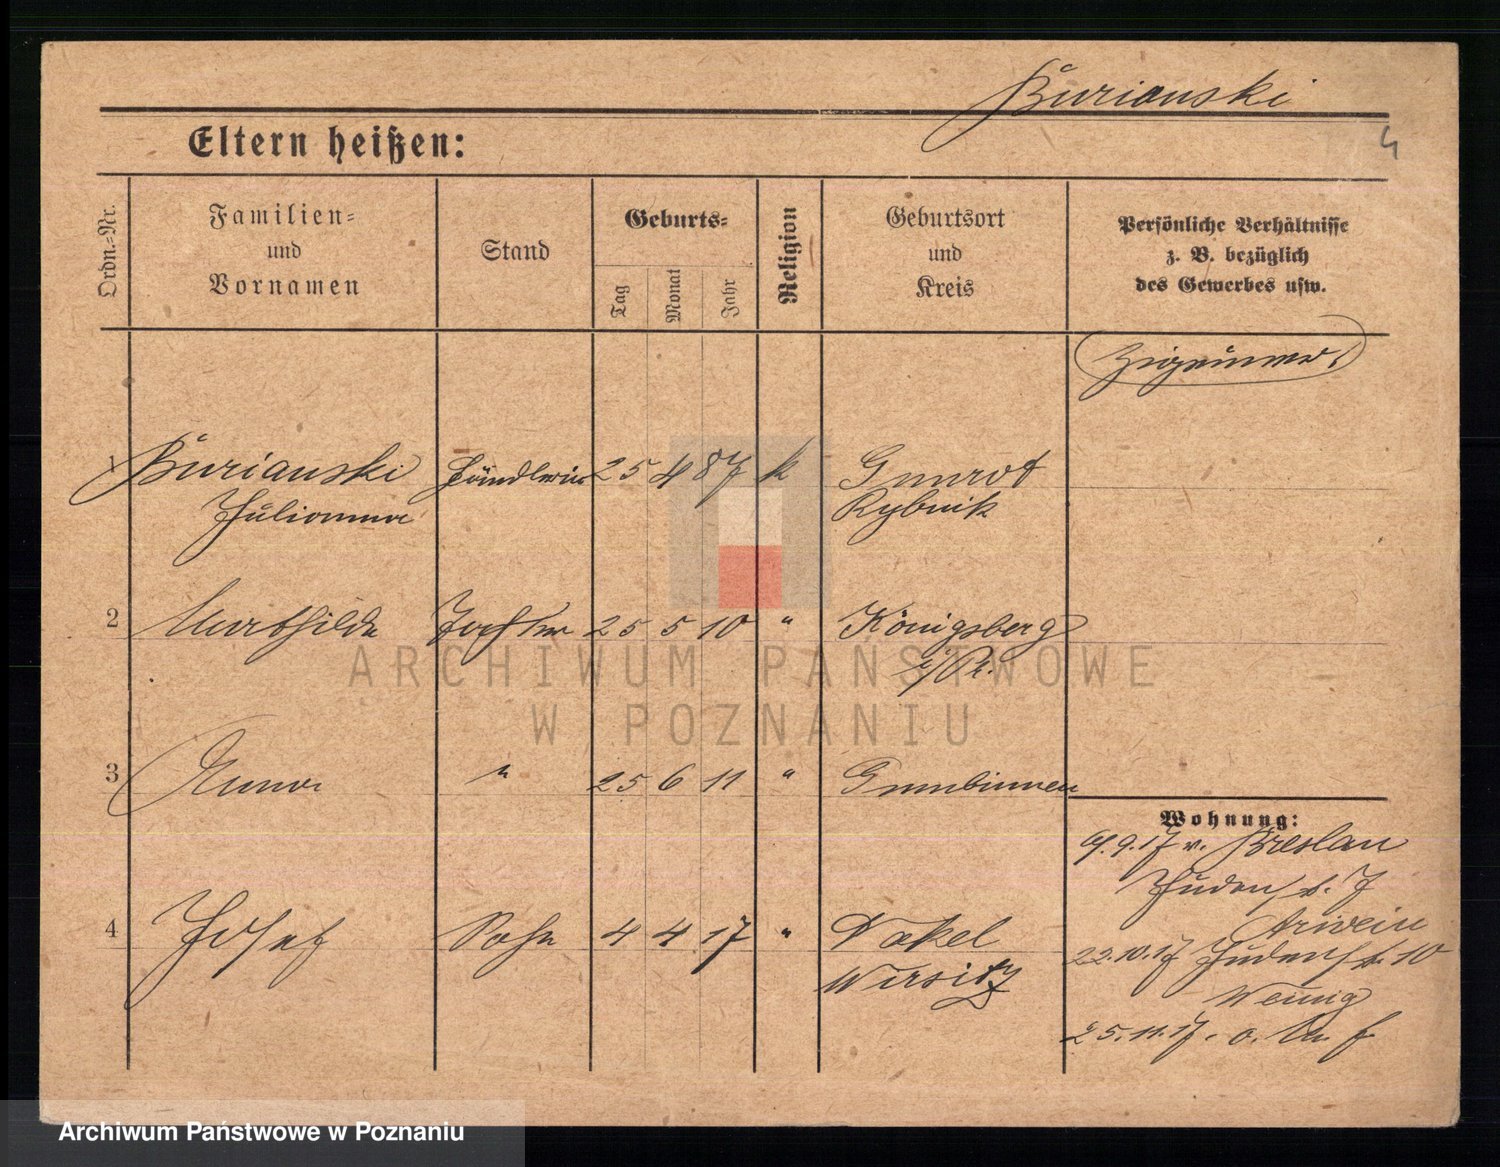 Burianski
4
Eltern heißen:
Ordn.-Nr.
Familien-
und
Vornamen
Stand
Geburts-
Tag
Monat
Jahr
Religion
Geburtsort
und
Kreis
Persönliche Verhältnisse
z. B. bezüglich
des Gewerbes usw.
Zigeuner
1 Burianski Händlerin 25 4 87 k
Julianna Rybnik
2 Mathilde Tochter 25 5 10 " Königsberg
i/Pr.
3 Anna " 25 6 11 " Gumbinnen
4 Josef Sohn 4 4 17 " Nakel
Wirsitz
Wohnung:
9.17 v. Breslau
Judenstr. 7
22.10.17 Judenstr. 10
Wennig
25.11.17. o.
ARCHIWUM PAŃSTWOWE
W POZNANIU
Archiwum Państwowe w Poznaniu